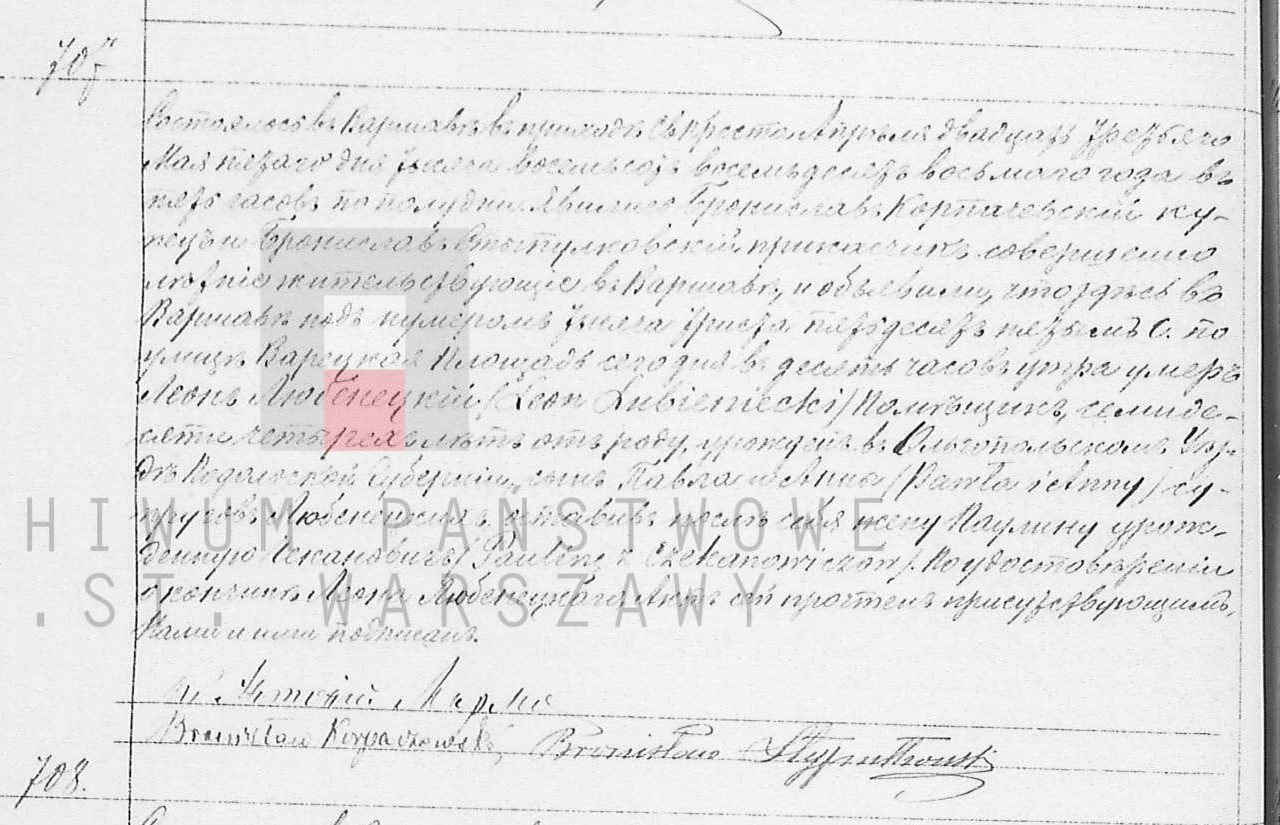 707
Состоялось въ Варшавѣ въ приходѣ Св Креста Апрѣля двадцать третьяго
Мая пятаго дня тысяча восемьсотъ восемьдесятъ восьмаго года въ
пять часовъ по полудни. Явились Брониславъ Корпачевскій ку-
пецъ и Брониславъ прикащикъ совершенно
лѣтніе жительствующіе въ Варшавѣ, и объявили, что здѣсь въ
Варшавѣ подъ нумеромъ тысяча триста пятьдесятъ пятымъ С. по
улицѣ Варецкая Площадь сегодня въ десять часовъ утра умеръ
Леонъ Любенецкій /Leon Lubieniecki/ Помѣщикъ, семиде-
сяти четырехъ лѣтъ отъ роду, урожден въ Ольгопольскомъ Уѣз-
дѣ Подольской Губерніи, сынъ Павла и Анны /Pawła i Anny/ су-
пруговъ Любенецкихъ, оставивъ послѣ себя жену Паулину урож-
денную Чекановичъ /Paulinę z Czekanowiczów/. По удостовѣреніи
о кончинѣ Леона Любенецкаго Актъ сей прочтенъ присутствующимъ,
Нами и ими подписанъ.
Bronisław Korpaczewski, Bronisław
708.
HIWUM PAŃSTWOWE
.ST. WARSZAWY